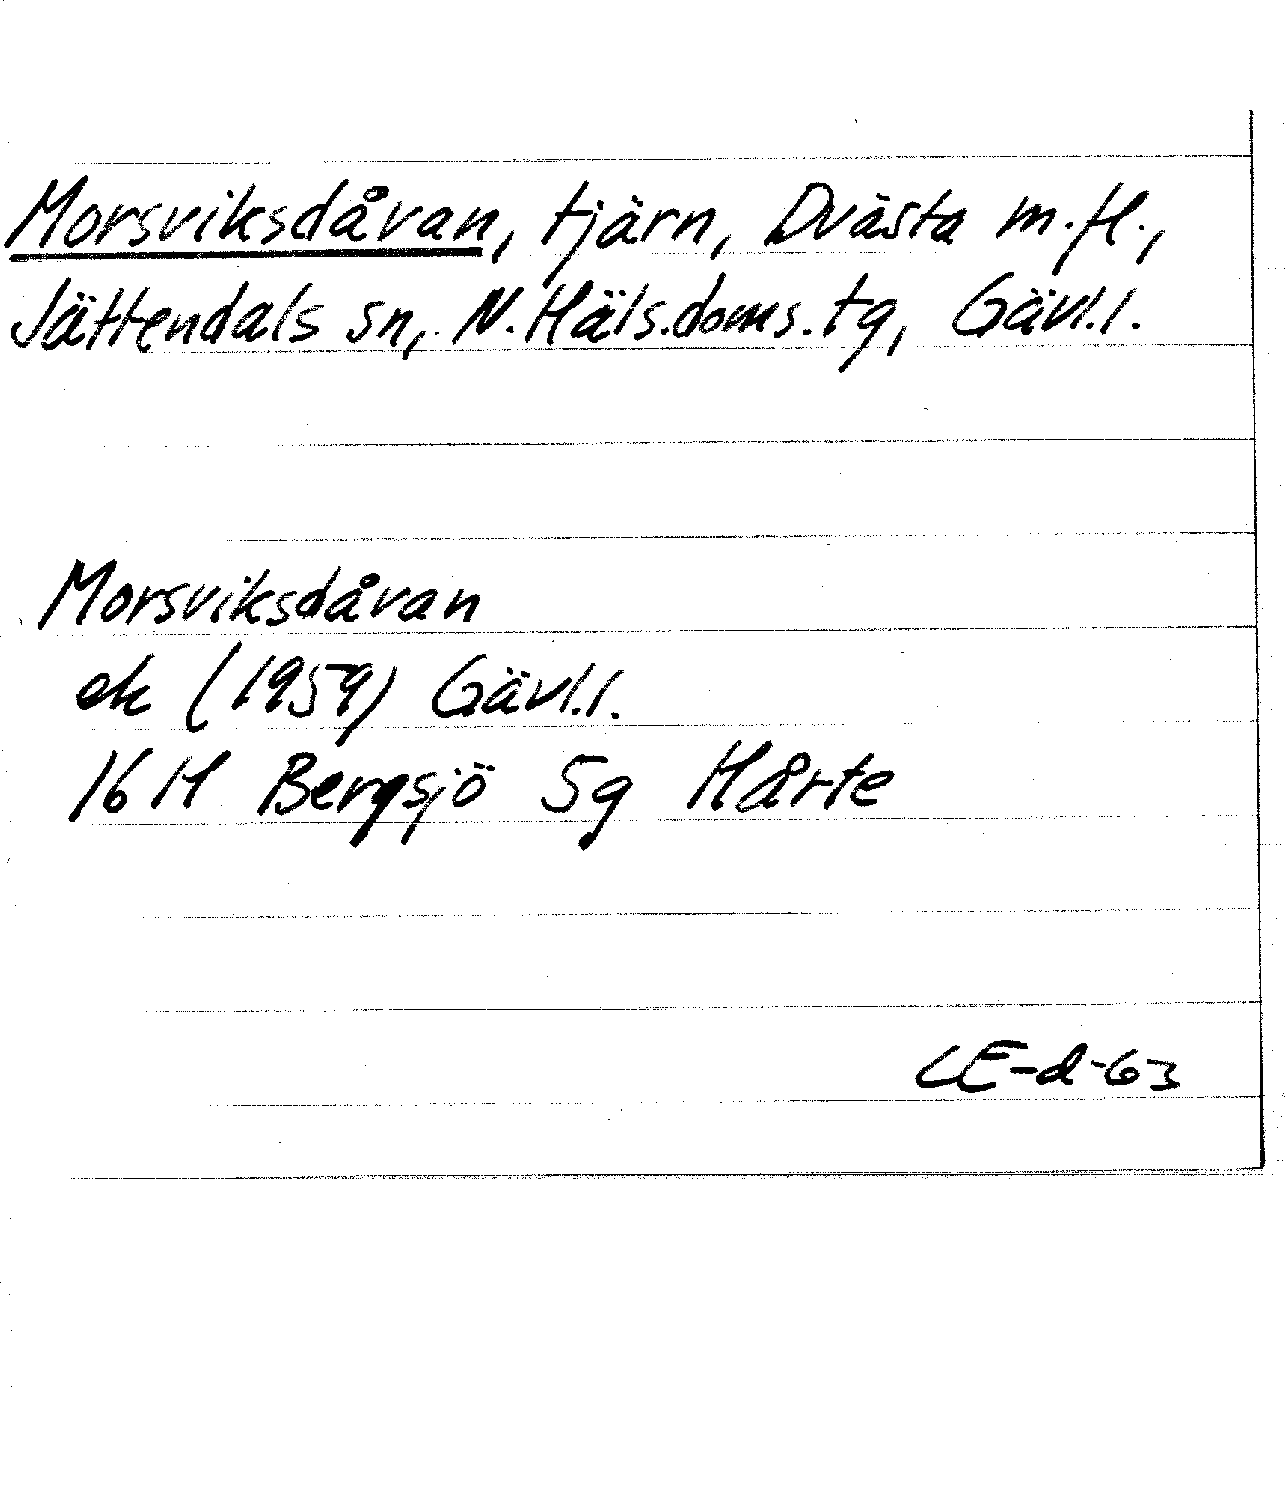 Morsviksdåvan, tjärn, Dvästa m.fl.,
Jättendals sn, N. Häls.doms.tg, Gävl.l.
Morsviksdåvan
ek (1959) Gävl.l.
16H Bergsjö 5g Hårte
CE-d-63